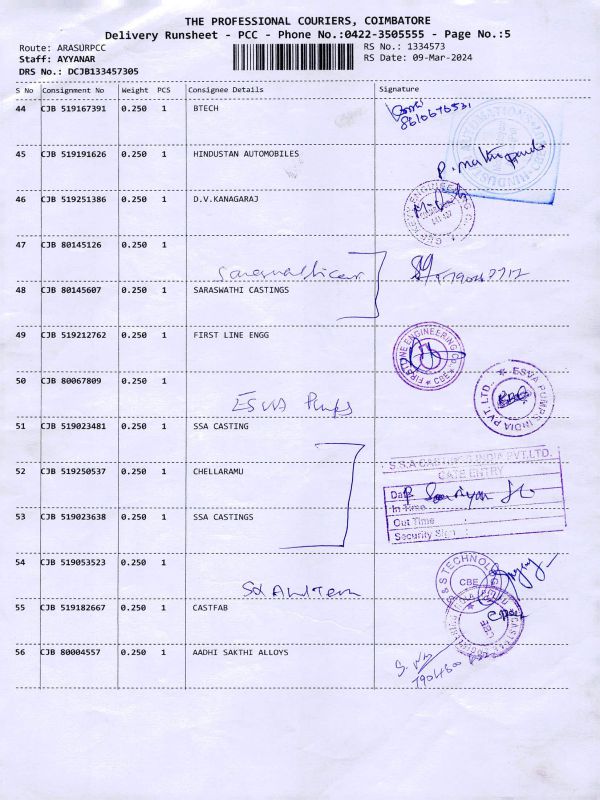 THE PROFESSIONAL COURIERS, COIMBATORE
Delivery Runsheet - PCC - Phone No.:0422-3505555 - Page No.:5
Route: ARASURPCC
RS No.: 1334573
Staff: AYYANAR
RS Date: 09-Mar-2024
DRS No.: DCJB133457305
S No Consignment No Weight PCS Consignee Details Signature
44 CJB 519167391 0.250 1 BTECH
8610676531
45 CJB 519191626 0.250 1 HINDUSTAN AUTOMOBILES
46 CJB 519251386 0.250 1 D.V.KANAGARAJ
47 CJB 80145126 0.250 1
48 CJB 80145607 0.250 1 SARASWATHI CASTINGS
49 CJB 519212762 0.250 1 FIRST LINE ENGG
FIRSTONE ENGINEERING CO. CBE
50 CJB 80067809 0.250 1
ESVA Pumps
ESVA PUMPS INDIA PVT. LTD.
51 CJB 519023481 0.250 1 SSA CASTING
S.S.A CASTINGS INDIA PVT.LTD.
GATE ENTRY
52 CJB 519250537 0.250 1 CHELLARAMU
Date
In Time
Out Time :
Security Sign :
53 CJB 519023638 0.250 1 SSA CASTINGS
54 CJB 519053523 0.250 1
S S TECHNOLOGY
CBE
55 CJB 519182667 0.250 1 CASTFAB
CBE
56 CJB 80004557 0.250 1 AADHI SAKTHI ALLOYS